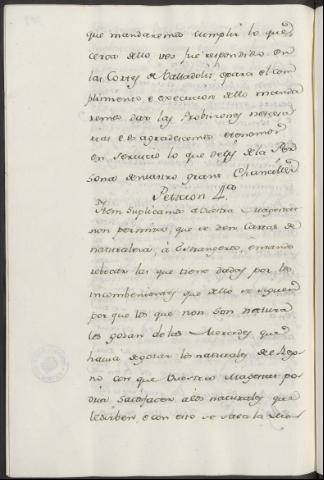 que mandaremos cumplir lo que
cerca dello vos fue respondido en
las Cortes de Valladolid e para el com
plimiento e execucion dello manda
remos dar las Probisiones necesa
rias e os agradescemos e tenemos
en servicio lo que decis de la Per
sona de nuestro grand Chanciller
Peticion 4.
Item suplicamos a Vuestra Magestad
non permita, que se den Cartas de
naturaleza, a Estrangeros, e mande
rebocar las que tiene dadas por los
incombenientes que dello se siguen
por que los que non son natura
les gozan de las Mercedes que
havia de gozar los naturales de el Rey
no con que Vuestra Magestad po
dria satisfacer a los naturales que
le sirben, e con esto se saca la Mon